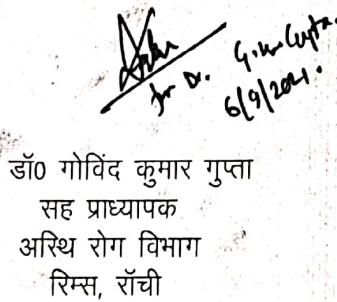 for Dr. G. K. Gupta.
6/9/2021.
डॉ0 गोविंद कुमार गुप्ता
सह प्राध्यापक
अस्थि रोग विभाग
रिम्स, रॉची